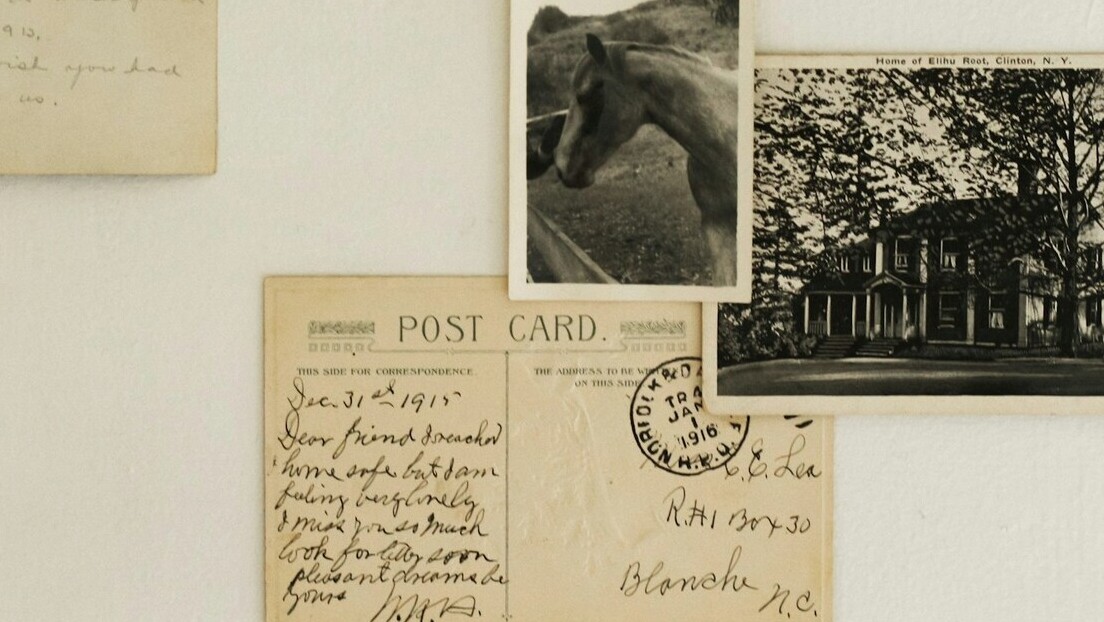 912.
wish you had
us.
Home of Elihu Root, Clinton, N. Y.
POST CARD.
THIS SIDE FOR CORRESPONDENCE
THE ADDRESS TO BE
ON THIS SIDE
Dec. 31st 1915
Dear friend I reached
home safe but I am
feeling very lonely
I miss you so much
look for letter soon
pleasant dreams be
yours
NORFOLK & DA
TRA
JAN
1
1916
R.P.O.
C. E. Lea
R.#1 Box 30
Blanche
N.C.